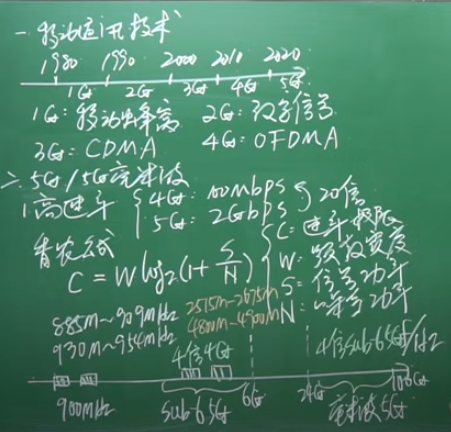 一 移动通讯技术
1980 1990 2000 2010 2020
1G 2G 3G 4G 5G
1G: 移动蜂窝 2G: 数字信号
3G: CDMA 4G: OFDMA
二 5G/5G毫米波
1.高速率 4G: 100Mbps 20倍
5G: 2Gbps
香农公式 C: 速率极限
C = W log₂(1+ S/N) W: 频段宽度
S: 信号功率
N: 噪声功率
885M~909MHz 2515M~2675M
930M~954MHz 4800M~4900M
4倍4G 4倍sub-6 5G
6G 24G 100G
900MHz sub-6 5G 毫米波5G